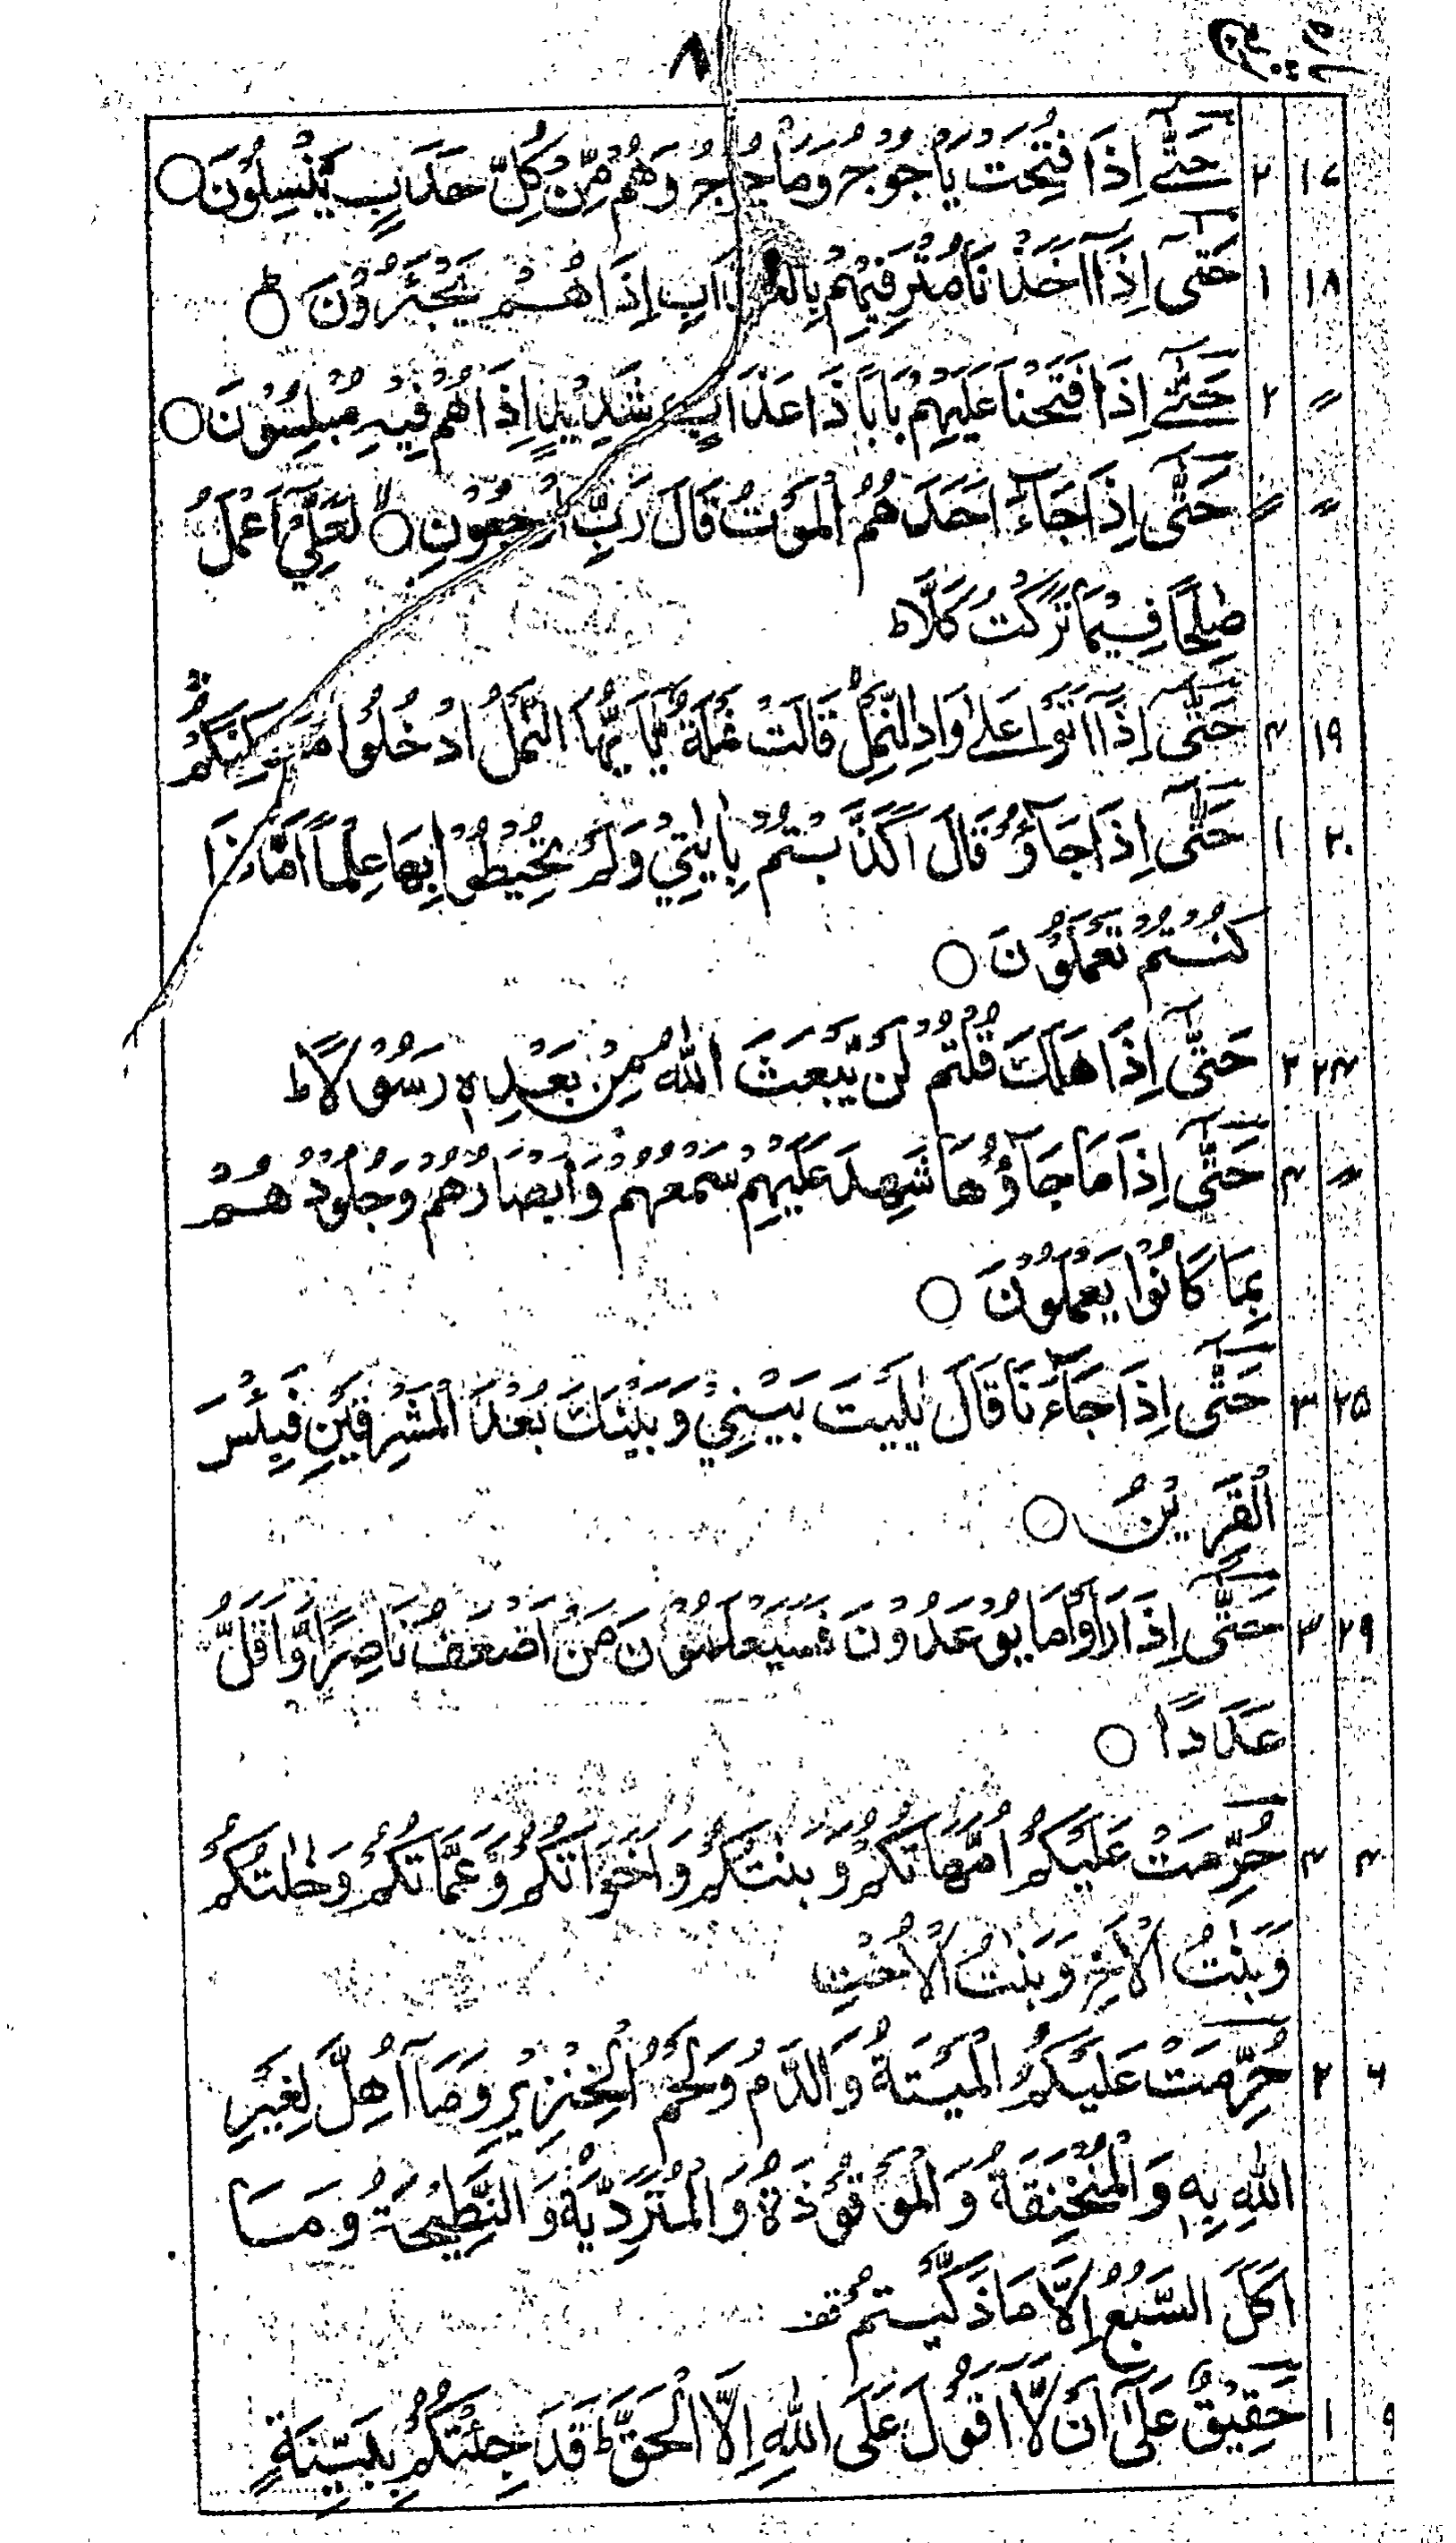 ٨
١٧ ٢ حَتّٰۤى اِذَا فُتِحَتْ يَاْجُوْجُ وَمَاْجُوْجُ وَهُمْ مِّنْ كُلِّ حَدَبٍ يَّنْسِلُوْنَ ○
١٨ ١ حَتّٰۤى اِذَاۤ اَخَذْنَا مُتْرَفِيْهِمْ بِالْعَذَابِ اِذَا هُمْ يَجْئَرُوْنَ ○ؕ
〃 ٢ حَتّٰۤى اِذَا فَتَحْنَا عَلَيْهِمْ بَابًا ذَا عَذَابٍ شَدِيْدٍ اِذَا هُمْ فِيْهِ مُبْلِسُوْنَ ○
〃 〃 حَتّٰۤى اِذَا جَآءَ اَحَدَهُمُ الْمَوْتُ قَالَ رَبِّ ارْجِعُوْنِ ○ۙ لَعَلِّيْۤ اَعْمَلُ
صٰلِحًا فِيْمَا تَرَكْتُ كَلَّاؕ
١٩ ٤ حَتّٰۤى اِذَاۤ اَتَوْا عَلٰى وَادِ النَّمْلِ قَالَتْ نَمْلَةٌ يّٰۤاَيُّهَا النَّمْلُ ادْخُلُوْا مَسٰكِنَكُمْ
٢٠ ١ حَتّٰۤى اِذَا جَآءُوْ قَالَ اَكَذَّبْتُمْ بِاٰيٰتِيْ وَلَمْ تُحِيْطُوْا بِهَا عِلْمًا اَمَّا ذَا
كُنْتُمْ تَعْمَلُوْنَ ○
٢٤ ٢ حَتّٰۤى اِذَا هَلَكَ قُلْتُمْ لَنْ يَّبْعَثَ اللّٰهُ مِنْ بَعْدِهٖ رَسُوْلًاؕ
〃 ٤ حَتّٰۤى اِذَا مَا جَآءُوْهَا شَهِدَ عَلَيْهِمْ سَمْعُهُمْ وَاَبْصَارُهُمْ وَجُلُوْدُهُمْ
بِمَا كَانُوْا يَعْمَلُوْنَ ○
٢٥ ٣ حَتّٰۤى اِذَا جَآءَنَا قَالَ يٰلَيْتَ بَيْنِيْ وَبَيْنَكَ بُعْدَ الْمَشْرِقَيْنِ فَبِئْسَ
الْقَرِيْنُ ○
٢٩ ٣ حَتّٰۤى اِذَا رَاَوْا مَا يُوْعَدُوْنَ فَسَيَعْلَمُوْنَ مَنْ اَضْعَفُ نَاصِرًا وَّاَقَلُّ
عَدَدًا ○
٤ ٤ حُرِّمَتْ عَلَيْكُمْ اُمَّهَاتُكُمْ وَبَنٰتُكُمْ وَاَخَوَاتُكُمْ وَعَمَّاتُكُمْ وَخٰلٰتُكُمْ
وَبَنٰتُ الْاَخِ وَبَنٰتُ الْاُخْتِ
٦ ٢ حُرِّمَتْ عَلَيْكُمُ الْمَيْتَةُ وَالدَّمُ وَلَحْمُ الْخِنْزِيْرِ وَمَاۤ اُهِلَّ لِغَيْرِ
اللّٰهِ بِهٖ وَالْمُنْخَنِقَةُ وَالْمَوْقُوْذَةُ وَالْمُتَرَدِّيَةُ وَالنَّطِيْحَةُ وَمَاۤ
اَكَلَ السَّبُعُ اِلَّا مَا ذَكَّيْتُمْ قف
٩ ١ حَقِيْقٌ عَلٰۤى اَنْ لَّاۤ اَقُوْلَ عَلَى اللّٰهِ اِلَّا الْحَقَّؕ قَدْ جِئْتُكُمْ بِبَيِّنَةٍ